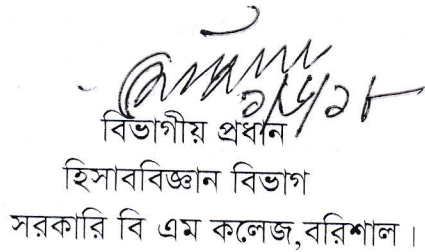 বিভাগীয় প্রধান
হিসাববিজ্ঞান বিভাগ
সরকারি বি এম কলেজ,বরিশাল ।